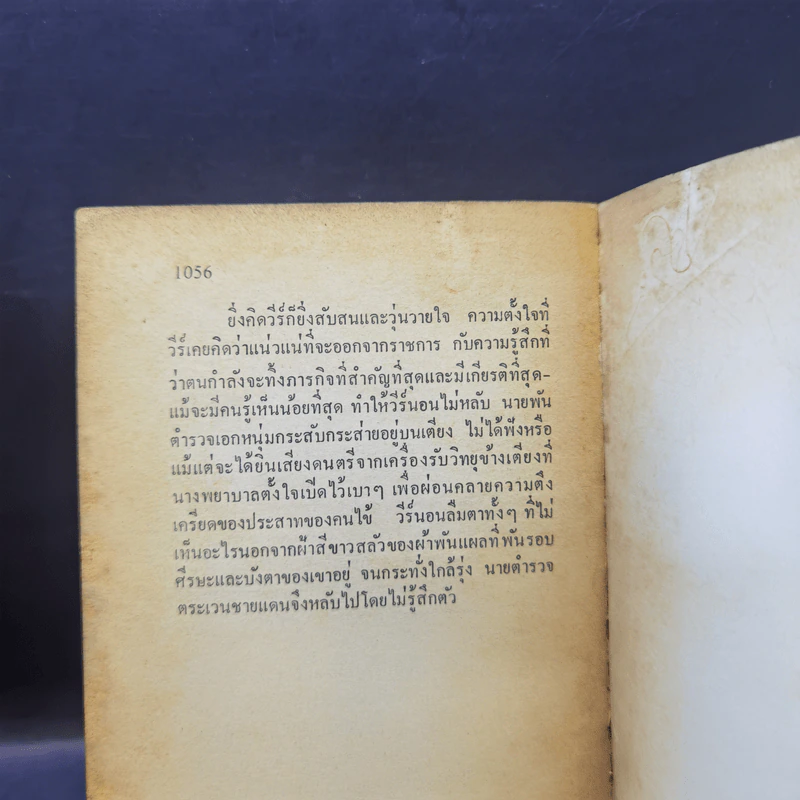 1056
ยิ่งคิดวีร์ก็ยิ่งสับสนและวุ่นวายใจ ความตั้งใจที่
วีร์เคยคิดว่าแน่วแน่ที่จะออกจากราชการ กับความรู้สึกที่
ว่าตนกำลังจะทิ้งภารกิจที่สำคัญที่สุดและมีเกียรติที่สุด-
แม้จะมีคนรู้เห็นน้อยที่สุด ทำให้วีร์นอนไม่หลับ นายพัน
ตำรวจเอกหนุ่มกระสับกระส่ายอยู่บนเตียง ไม่ได้ฟังหรือ
แม้แต่จะได้ยินเสียงดนตรีจากเครื่องรับวิทยุข้างเตียงที่
นางพยาบาลตั้งใจเปิดไว้เบาๆ เพื่อผ่อนคลายความตึง
เครียดของประสาทของคนไข้ วีร์นอนลืมตาทั้งๆ ที่ไม่
เห็นอะไรนอกจากผ้าสีขาวสลัวของผ้าพันแผลที่พันรอบ
ศีรษะและบังตาของเขาอยู่ จนกระทั่งใกล้รุ่ง นายตำรวจ
ตระเวนชายแดนจึงหลับไปโดยไม่รู้สึกตัว